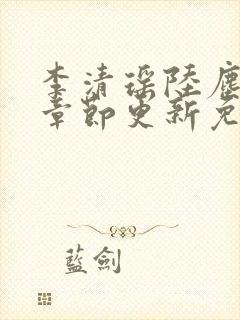 李清瑶陸塵
章節更新免
藍劍